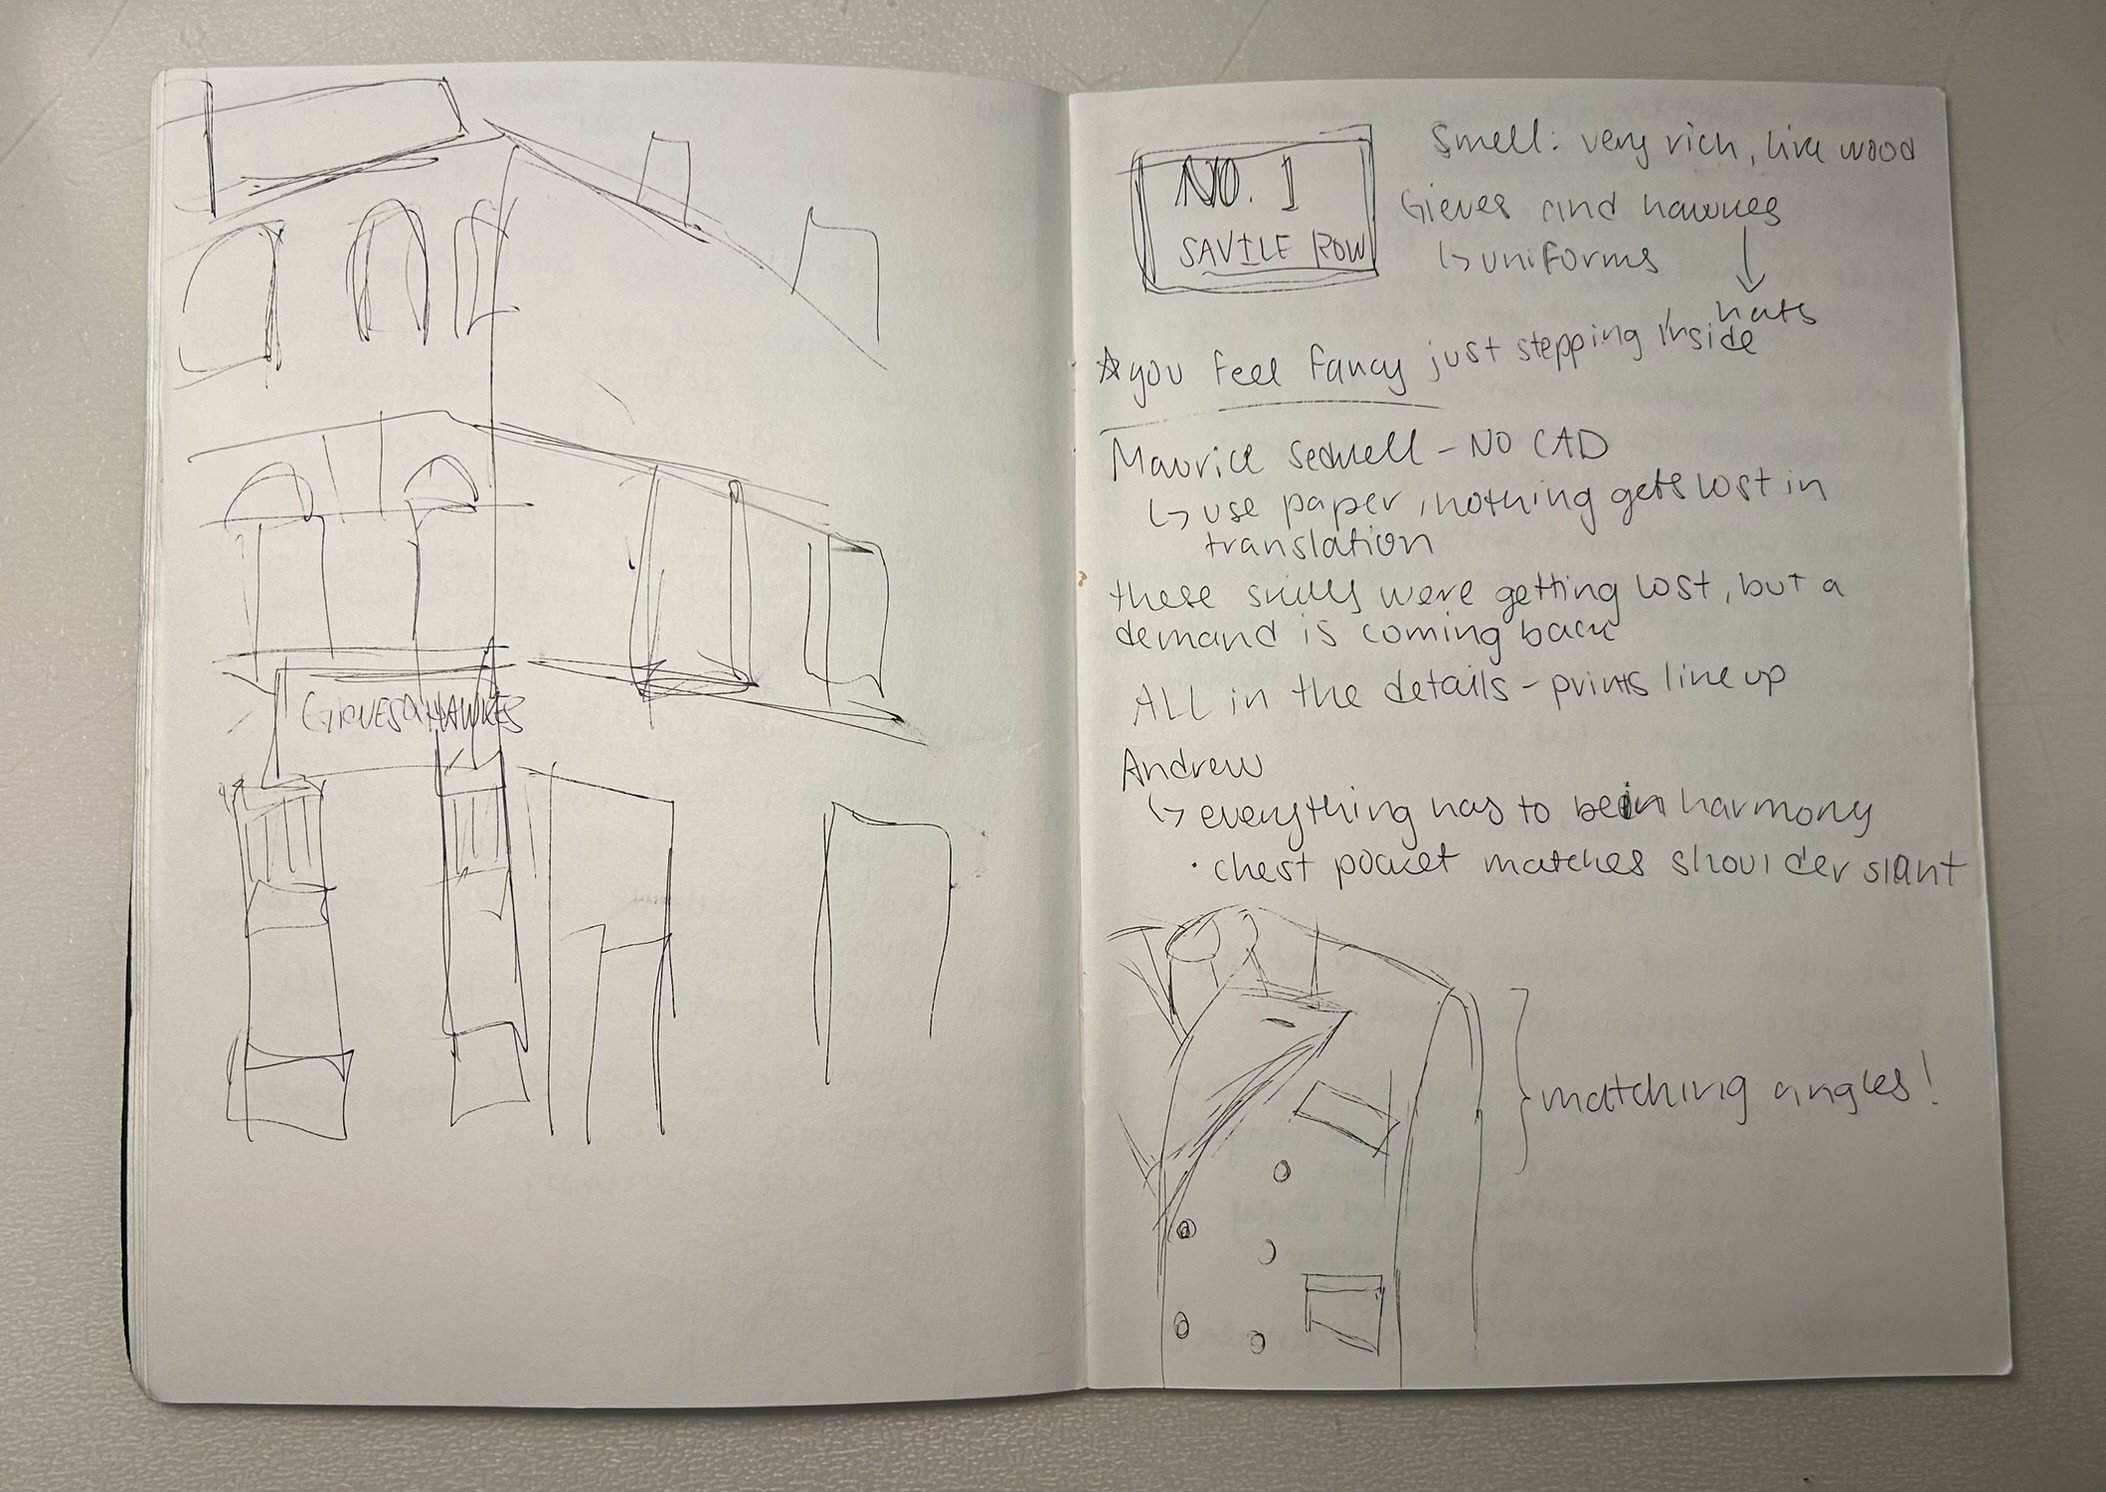 GIEVES & HAWKES
NO. 1
SAVILE ROW
Smell: very rich, like wood
Gieves and hawkes
↳ uniforms
hats
☆ you feel fancy just stepping inside
Maurice Sedwell - NO CAD
↳ use paper, nothing gets lost in
translation
these skills were getting lost, but a
demand is coming back
ALL in the details - prints line up
Andrew
↳ everything has to be in harmony
· chest pocket matches shoulder slant
matching angles!